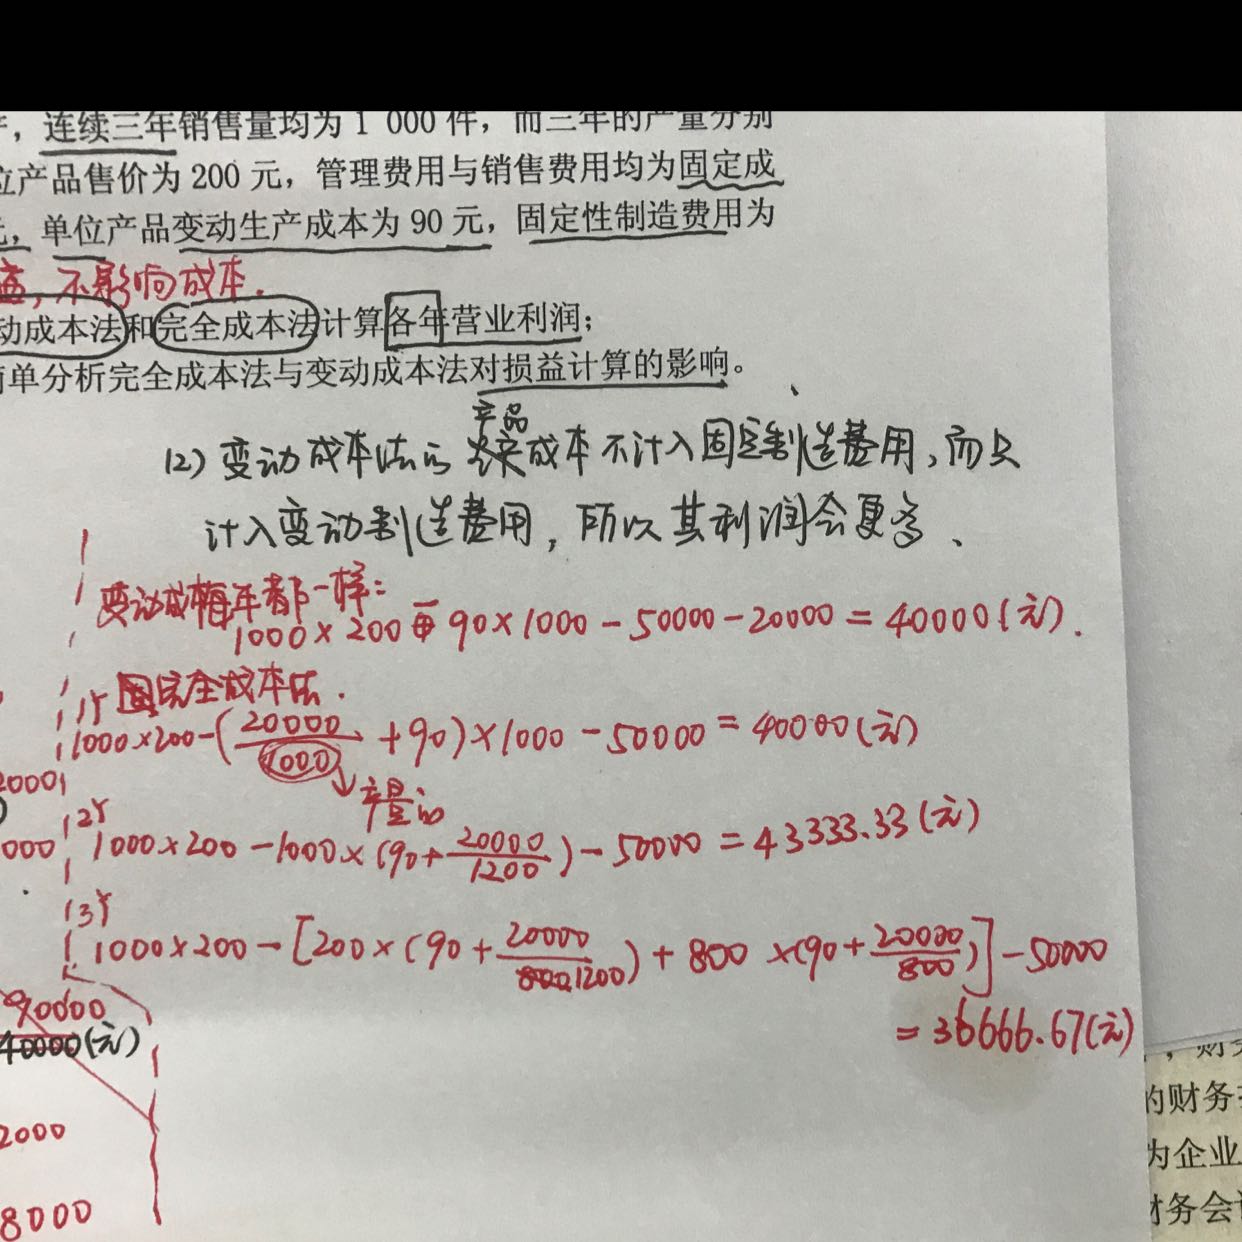 ，连续三年销售量均为 1 000 件，而三年的产量分别
位产品售价为 200 元，管理费用与销售费用均为固定成
元，单位产品变动生产成本为 90 元，固定性制造费用为
不影响成本.
动成本法和完全成本法计算各年营业利润；
简单分析完全成本法与变动成本法对损益计算的影响。
产品
(2) 变动成本法的 成本不计入固定制造费用，而只
计入变动制造费用，所以其利润会更高、
变动成 每年都一样：
1000×200-90×1000-50000-20000=40000(元).
1Y 完全成本法.
1000×200-(20000/1000+90)×1000-50000=40000(元)
20000
产量的
2Y
000 1000×200-1000×(90+20000/1200)-50000=43333.33(元)
3Y
1000×200-[200×(90+20000/1200)+800×(90+20000/800)]-50000
90000
=36666.67(元)
40000(元)
2000
8000
，财务
的财务
为企业
财务会